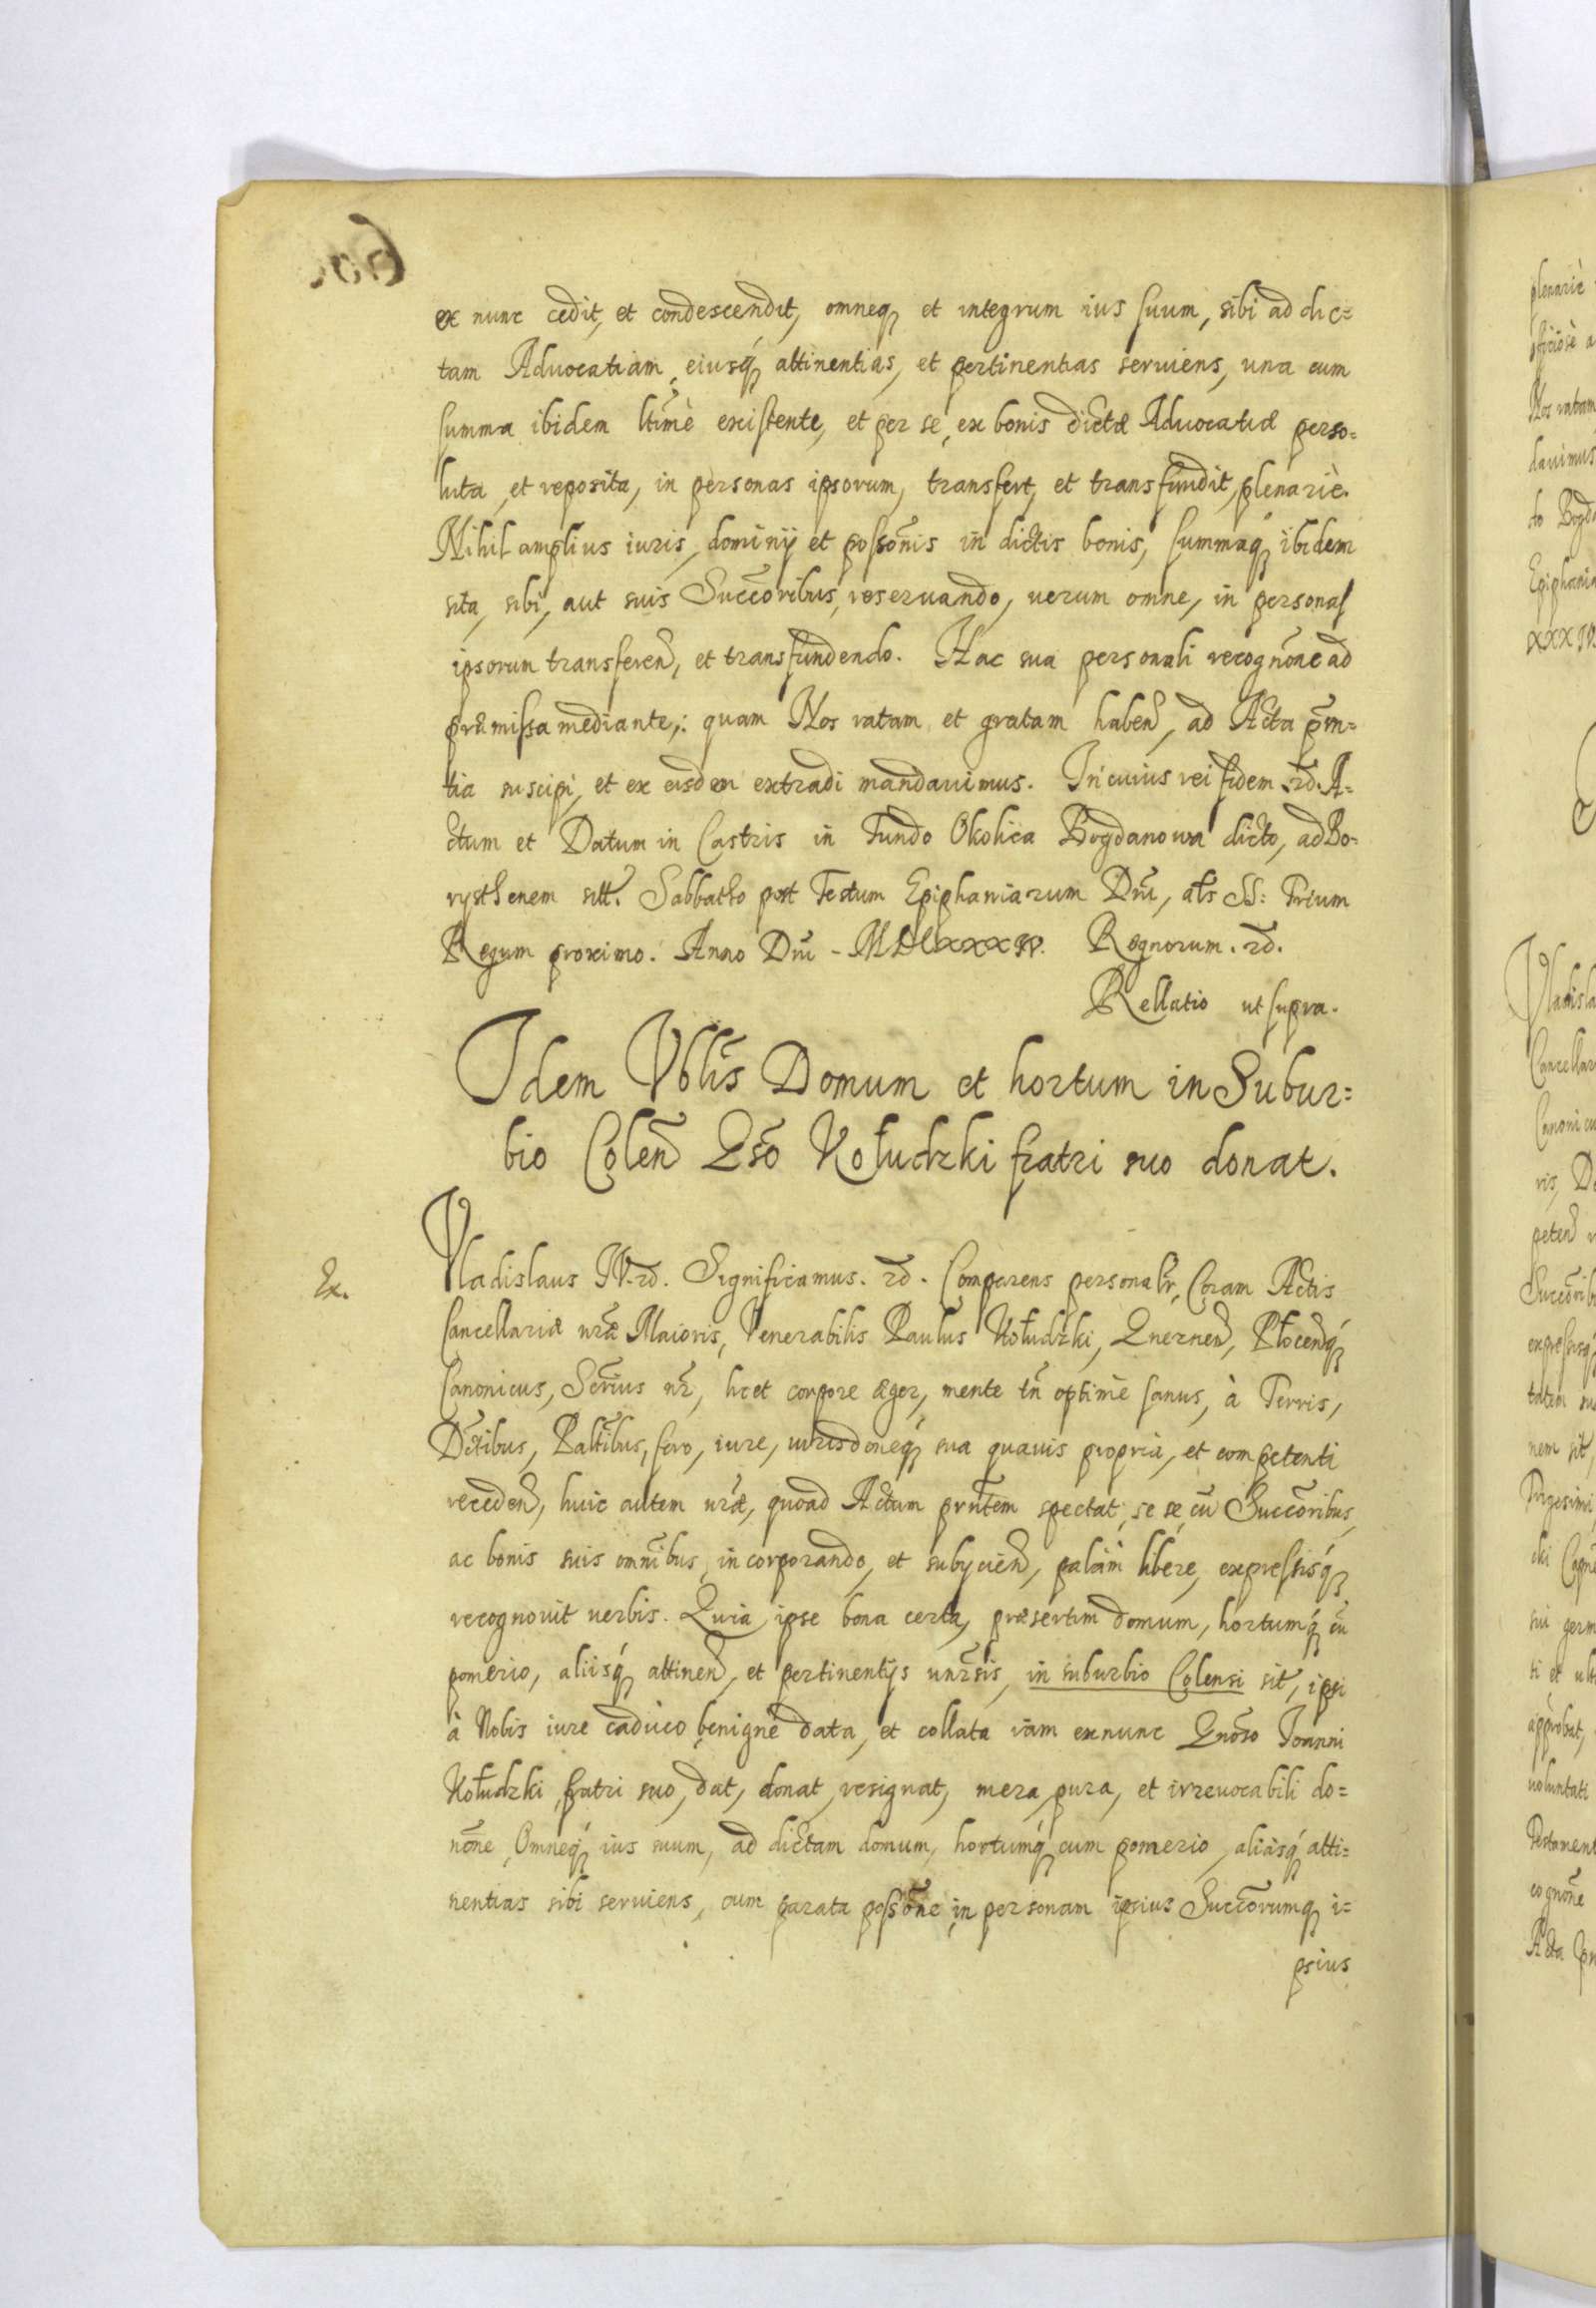 ex nunc cedit, et condescendit, omneq₃ et integrum ius suum, sibi ad dic=
tam Aduocatiam, eiusq₃ attinentias, et pertinentias seruiens, una cum
summa ibidem ltimè existente, et per se, ex bonis dictæ Aduocatiæ perso=
luta, et reposita, in personas ipsorum, transfert, et transfundit, plenariè.
Nihil amplius iuris, dominÿ et possonis in dictis bonis, summaq₃ ibidem
sita, sibi, aut suis Succoribus, reseruando, uerum omne, in personas
ipsorum transferen, et transfundendo. Hac sua personali recognone ad
præmissa mediante,: quam Nos ratam et gratam haben, ad Acta pñn=
tia suscipi, et ex eisdem extradi mandauimus. In cuius rei fidem ꝛd. A=
ctum et Datum in Castris in Fundo Okolica Bogdanowa dicto, ad Bo=
rysthenem sitt. Sabbatho post Festum Epiphaniarum Dni, als SS: Trium
Regum proximo. Anno Dni - MDCXXXIV. Regnorum. ꝛd.
Rellatio ut supra.
Idem Vblis Domum et hortum in Subur=
bio Colen Gso Kołudzki fratri suo donat.
Ex.
Vladislaus IV. ꝛd. Significamus. ꝛd. Comparens personalr, Coram Actis
Cancellariæ nræ Maioris, Venerabilis Paulus Kołudzki, Gnernen, Płocenq₃
Canonicus, Secrius nr, licet corpore æger, mente tñ optimè sanus, à Terris,
Dctibus, Paltibus, foro, iure, iurisdoneq₃ sua quauis propria, et competenti
receden, huic autem nræ, quoad Actum prñtem spectat, se se, cu Succoribus,
ac bonis suis omnibus, incorporando, et subijcien, palam libere, expressisq₃
recognouit uerbis. Quia ipse bona certa, præsertim domum, hortumq₃ cu
pomerio, aliisq₃ attinen, et pertinentÿs unrsis, in suburbio Colensi sit, ipsi
à Nobis iure caduco benignè data, et collata iam exnunc Gnoso Joanni
Kołudzki, fratri suo, dat, donat, resignat, mera, pura, et irreuocabili do=
none, Omneq₃ ius suum, ad dictam domum, hortumq₃ cum pomerio, aliasq₃ atti=
nentias sibi seruiens, cum parata possone in personam ipsius Succorumq₃ i=
psius